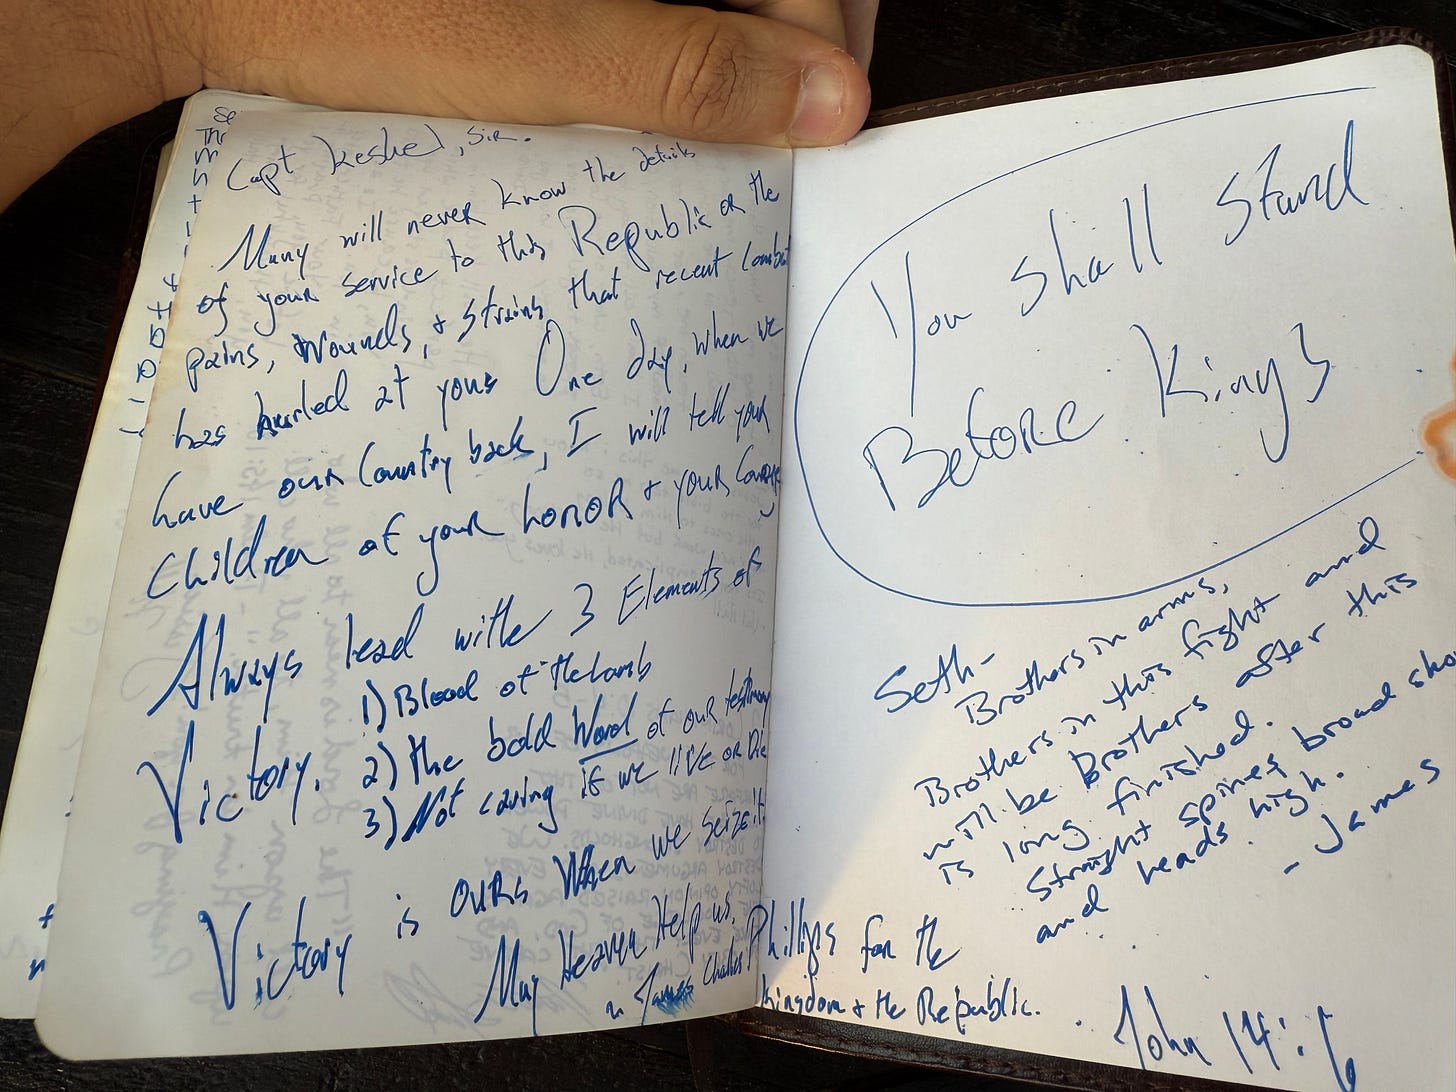 Capt Keshel, Sir.
Many will never know the details
of your service to this Republic or the
pains, wounds, & strains that recent combat
has hurled at you. One day, when we
have our Country back, I will tell your
Children of your honor & your Courage
Always lead with 3 Elements of
Victory. 1) Blood of the Lamb
2) the bold Word of our testimony
3) Not caring if we live or Die
Victory is ours When we seize it.
May Heaven Help us.
~ James Charles Phillips for the
Kingdom & the Republic.
You shall stand
Before Kings
Seth-
Brothers in arms,
Brothers in this fight and
will be Brothers after this
is long finished.
Straight spines broad sho
and heads high.
- James
John 14:6